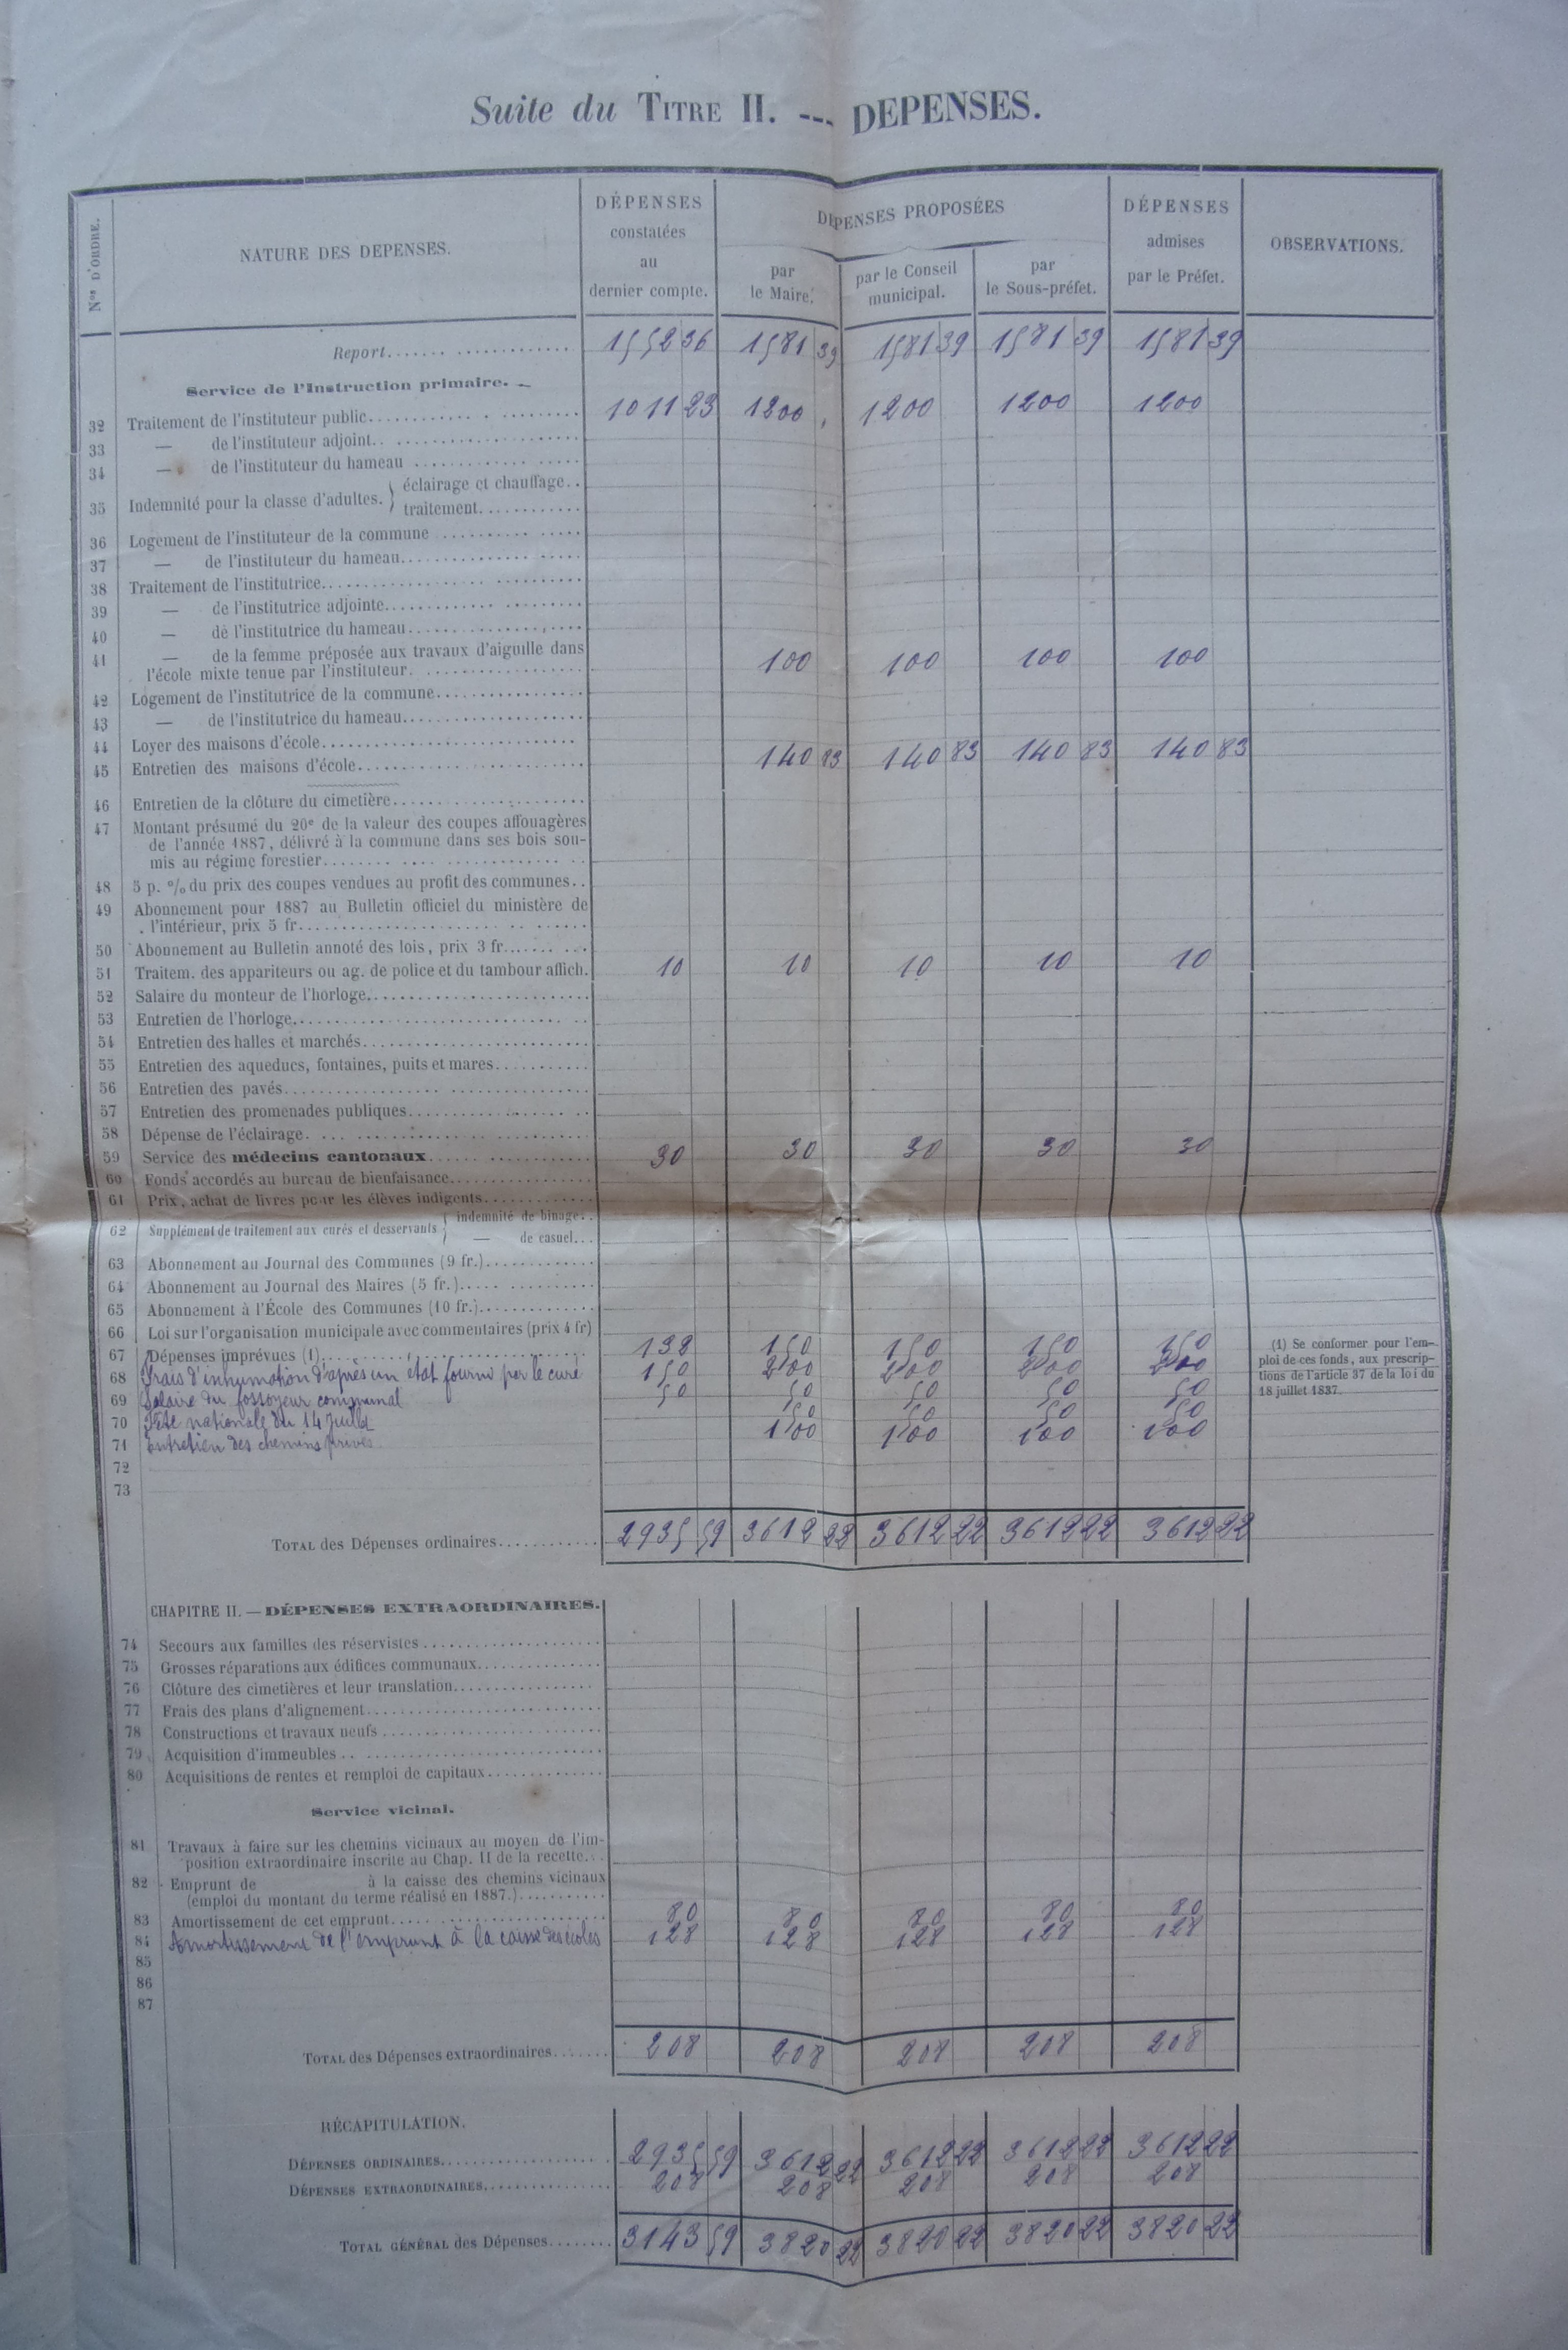 Suite du TITRE II. --- DEPENSES.
Nos D'ORDRE.
NATURE DES DEPENSES.
DÉPENSES constatées au dernier compte.
DEPENSES PROPOSÉES
par le Maire.
par le Conseil municipal.
par le Sous-préfet.
DÉPENSES admises par le Préfet.
OBSERVATIONS.
Report 1552 36 1581 39 1581 39 1581 39 1581 39
Service de l'Instruction primaire.
32 Traitement de l'instituteur public 1011 23 1200 1200 1200 1200
33 — de l'instituteur adjoint
34 — de l'instituteur du hameau
35 Indemnité pour la classe d'adultes. } éclairage et chauffage
traitement
36 Logement de l'instituteur de la commune
37 — de l'instituteur du hameau
38 Traitement de l'institutrice
39 — de l'institutrice adjointe
40 — de l'institutrice du hameau
41 — de la femme préposée aux travaux d'aiguille dans
l'école mixte tenue par l'instituteur. 100 100 100 100
42 Logement de l'institutrice de la commune
43 — de l'institutrice du hameau
44 Loyer des maisons d'école
45 Entretien des maisons d'école 140 83 140 83 140 83 140 83
46 Entretien de la clôture du cimetière
47 Montant présumé du 20e de la valeur des coupes affouagères
de l'année 1887, délivré à la commune dans ses bois sou-
mis au régime forestier
48 5 p. % du prix des coupes vendues au profit des communes
49 Abonnement pour 1887 au Bulletin officiel du ministère de
l'intérieur, prix 5 fr.
50 Abonnement au Bulletin annoté des lois, prix 3 fr.
51 Traitem. des appariteurs ou ag. de police et du tambour affich. 10 10 10 10 10
52 Salaire du monteur de l'horloge
53 Entretien de l'horloge
54 Entretien des halles et marchés
55 Entretien des aqueducs, fontaines, puits et mares
56 Entretien des pavés
57 Entretien des promenades publiques
58 Dépense de l'éclairage
59 Service des médecins cantonaux 30 30 30 30 30
60 Fonds accordés au bureau de bienfaisance
61 Prix, achat de livres pour les élèves indigents
62 Supplément de traitement aux curés et desservants { indemnité de binage
— de casuel
63 Abonnement au Journal des Communes (9 fr.)
64 Abonnement au Journal des Maires (5 fr.)
65 Abonnement à l'École des Communes (10 fr.)
66 Loi sur l'organisation municipale avec commentaires (prix 4 fr)
67 Dépenses imprévues (1) 132 150 150 150 150
68 Frais d'inhumation d'après un état fourni par le curé 150 200 200 200 200
69 Salaire du fossoyeur communal 50 50 50 50 50
70 Fête nationale du 14 juillet 50 50 50 50
71 Entretien des chemins privés 100 100 100 100
72
73
(1) Se conformer pour l'em-
ploi de ces fonds, aux prescrip-
tions de l'article 37 de la loi du
18 juillet 1837.
TOTAL des Dépenses ordinaires 2935 59 3612 22 3612 22 3612 22 3612 22
CHAPITRE II. — DÉPENSES EXTRAORDINAIRES.
74 Secours aux familles des réservistes
75 Grosses réparations aux édifices communaux
76 Clôture des cimetières et leur translation
77 Frais des plans d'alignement
78 Constructions et travaux neufs
79 Acquisition d'immeubles
80 Acquisitions de rentes et remploi de capitaux
Service vicinal.
81 Travaux à faire sur les chemins vicinaux au moyen de l'im-
position extraordinaire inscrite au Chap. II de la recette
82 Emprunt de à la caisse des chemins vicinaux
(emploi du montant du terme réalisé en 1887.)
83 Amortissement de cet emprunt 80 80 80 80 80
84 Amortissement de l'emprunt à la caisse des écoles 128 128 128 128 128
85
86
87
TOTAL des Dépenses extraordinaires 208 208 208 208 208
RÉCAPITULATION.
DÉPENSES ORDINAIRES 2935 59 3612 22 3612 22 3612 22 3612 22
DÉPENSES EXTRAORDINAIRES 208 208 208 208 208
TOTAL GÉNÉRAL des Dépenses 3143 59 3820 22 3820 22 3820 22 3820 22